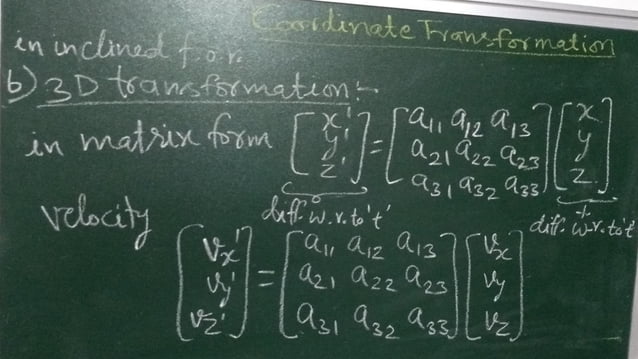 Coordinate Transformation
in inclined f.o.r.
b) 3D transformation:-
in matrix form [x' y' z'] = [a11 a12 a13 a21 a22 a23 a31 a32 a33] [x y z]
diff. w.r.to 't' diff. w.r.to 't'
velocity
[vx' vy' vz'] = [a11 a12 a13 a21 a22 a23 a31 a32 a33] [vx vy vz]